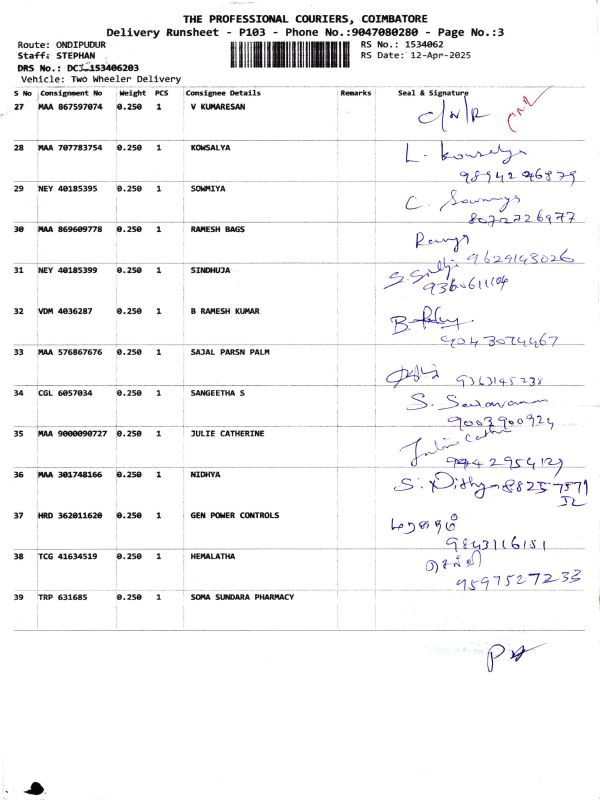 THE PROFESSIONAL COURIERS, COIMBATORE
Delivery Runsheet - P103 - Phone No.:9047080280 - Page No.:3
Route: ONDIPUDUR RS No.: 1534062
Staff: STEPHAN RS Date: 12-Apr-2025
DRS No.: DCJ-153406203
Vehicle: Two Wheeler Delivery
S No Consignment No Weight PCS Consignee Details Remarks Seal & Signature
27 MAA 867597074 0.250 1 V KUMARESAN C/N/R
28 MAA 707783754 0.250 1 KOWSALYA L. Kowsalya
29 NEY 40185395 0.250 1 SOWMIYA C. Sowmya
8072726977
30 MAA 869609778 0.250 1 RAMESH BAGS
9629143026
31 NEY 40185399 0.250 1 SINDHUJA
32 VDM 4036287 0.250 1 B RAMESH KUMAR
9043074467
33 MAA 576867676 0.250 1 SAJAL PARSN PALM
9363145238
34 CGL 6057034 0.250 1 SANGEETHA S S. Saravanan
9003900924
35 MAA 9000090727 0.250 1 JULIE CATHERINE Julie
9442954129
36 MAA 301748166 0.250 1 NIDHYA S. Nidhya
37 HRD 362011620 0.250 1 GEN POWER CONTROLS
9843116151
38 TCG 41634519 0.250 1 HEMALATHA செல்வி
9597527233
39 TRP 631685 0.250 1 SOMA SUNDARA PHARMACY